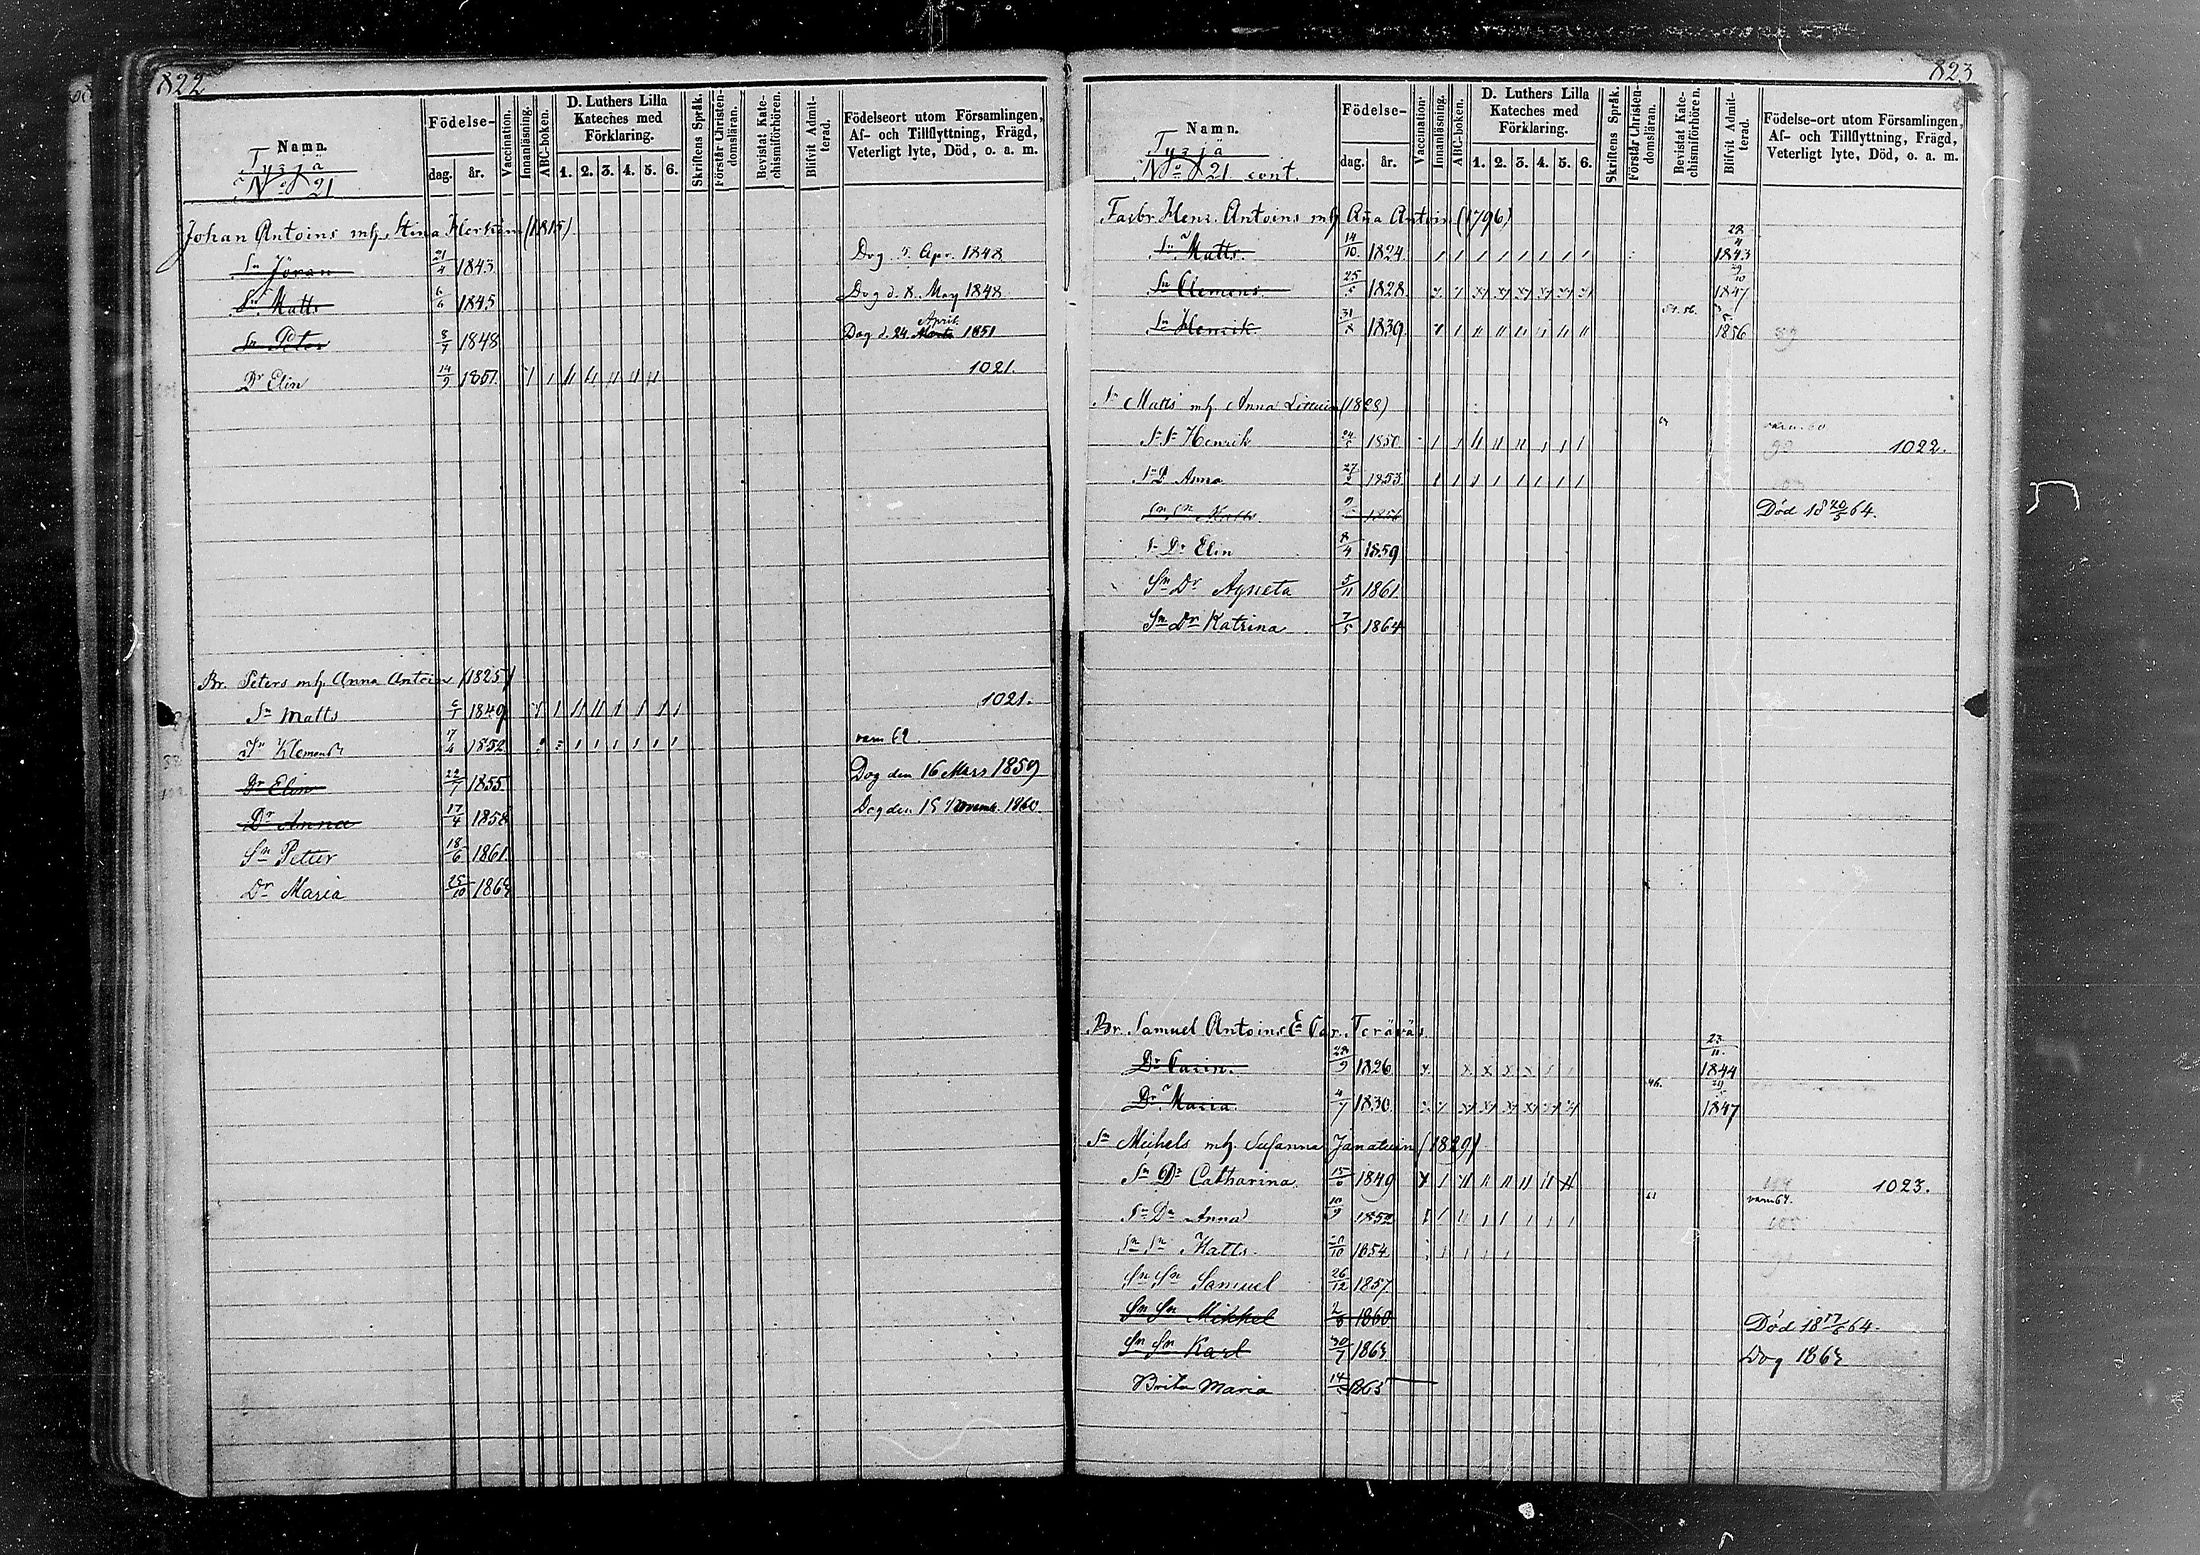 822
Namn.
Tyrjä
No 21
Födelse-
dag. år.
Vaccination.
Innanläsning.
ABC-boken.
D. Luthers Lilla
Kateches med
Förklaring.
1. 2. 3. 4. 5. 6.
Skriftens Språk.
Förstår Christen-
domsläran.
Bevistat Kate-
chismiförhören.
Blifvit Admit-
terad.
Födelseort utom Församlingen,
Af- och Tillflyttning, Frägd,
Veterligt lyte, Död, o. a. m.
Johan Antoins mh. Stina (1815)
Sn Jöran 21/4 1843 Dog 5 Apr. 1848
Sn Matts 6/6 1845 Dog d. 8. May 1848
April
Sn Peter 8/7 1848 Dog d. 24. 1851
Dr Elin 14/9 1851 1021.
Br. Peters mh. Anna Antoin (1825)
Sn Matts 1849 1021.
Sn Klemens 7/4 1852
Dr Elin 22/7 1855 Dog den 16 Mars 1859
Dr Anna 17/4 1858 Dog den 15 Novemb. 1860
Sn Petter 18/6 1861
Dr Maria 25/10 1863
823
Namn.
Tyrjä
No 21 cont.
Födelse-
dag. år.
Vaccination.
Innanläsning.
ABC-boken.
D. Luthers Lilla
Kateches med
Förklaring.
1. 2. 3. 4. 5. 6.
Skriftens Språk.
Förstår Christen-
domsläran.
Bevistat Kate-
chismiförhören.
Blifvit Admit-
terad.
Födelse-ort utom Församlingen,
Af- och Tillflyttning, Frägd,
Veterligt lyte, Död, o. a. m.
Farbr. Henr. Antoins mh. Aña Antoin (1796)
Sn Matts 14/10 1824 1843
Sn Clemens 25/5 1828 29/10 1847
Sn Henrik 31/8 1839 54. 56. 1856
Sn Matts mh. Anna (1828)
Sn Sn Henrik 1850 1022.
Sn D Anna 27/2 1853
Sn Sn Matts 1856 Död 18 20/5 64.
Sn Dr Elin 8/4 1859
Sn Dr Agneta 5/11 1861
Sn Dr Katrina 7/5 1864
Br. Samuel Antoins E. Car. Teräväs
Dr Carin. 1826 23/11. 1844
Dr Maria 4/7 1830 46. 1847
Sn Michels mh. Susanna Janatuin (1829)
Sn Dr Catharina 1849 1023.
Sn Dr Anna 1852
Sn Sn Matts 1854
Sn Sn Samuel 26/12 1857
Sn Sn Mikkel 1860 Död 18 64.
Sn Sn Karl 30/7 1863 Dog 1863
Brita Maria 1865